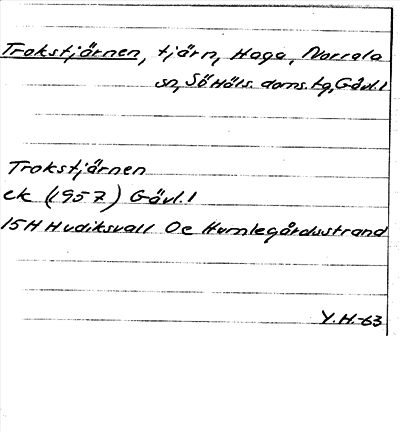 Trokstjärnen, tjärn, Haga, Norrala
sn, Sö Häls. doms. tg, Gävl. l
Trokstjärnen
ek (1957) Gävl. l
15H Hudiksvall Oe Humlegårdsstrand
Y. H. -63